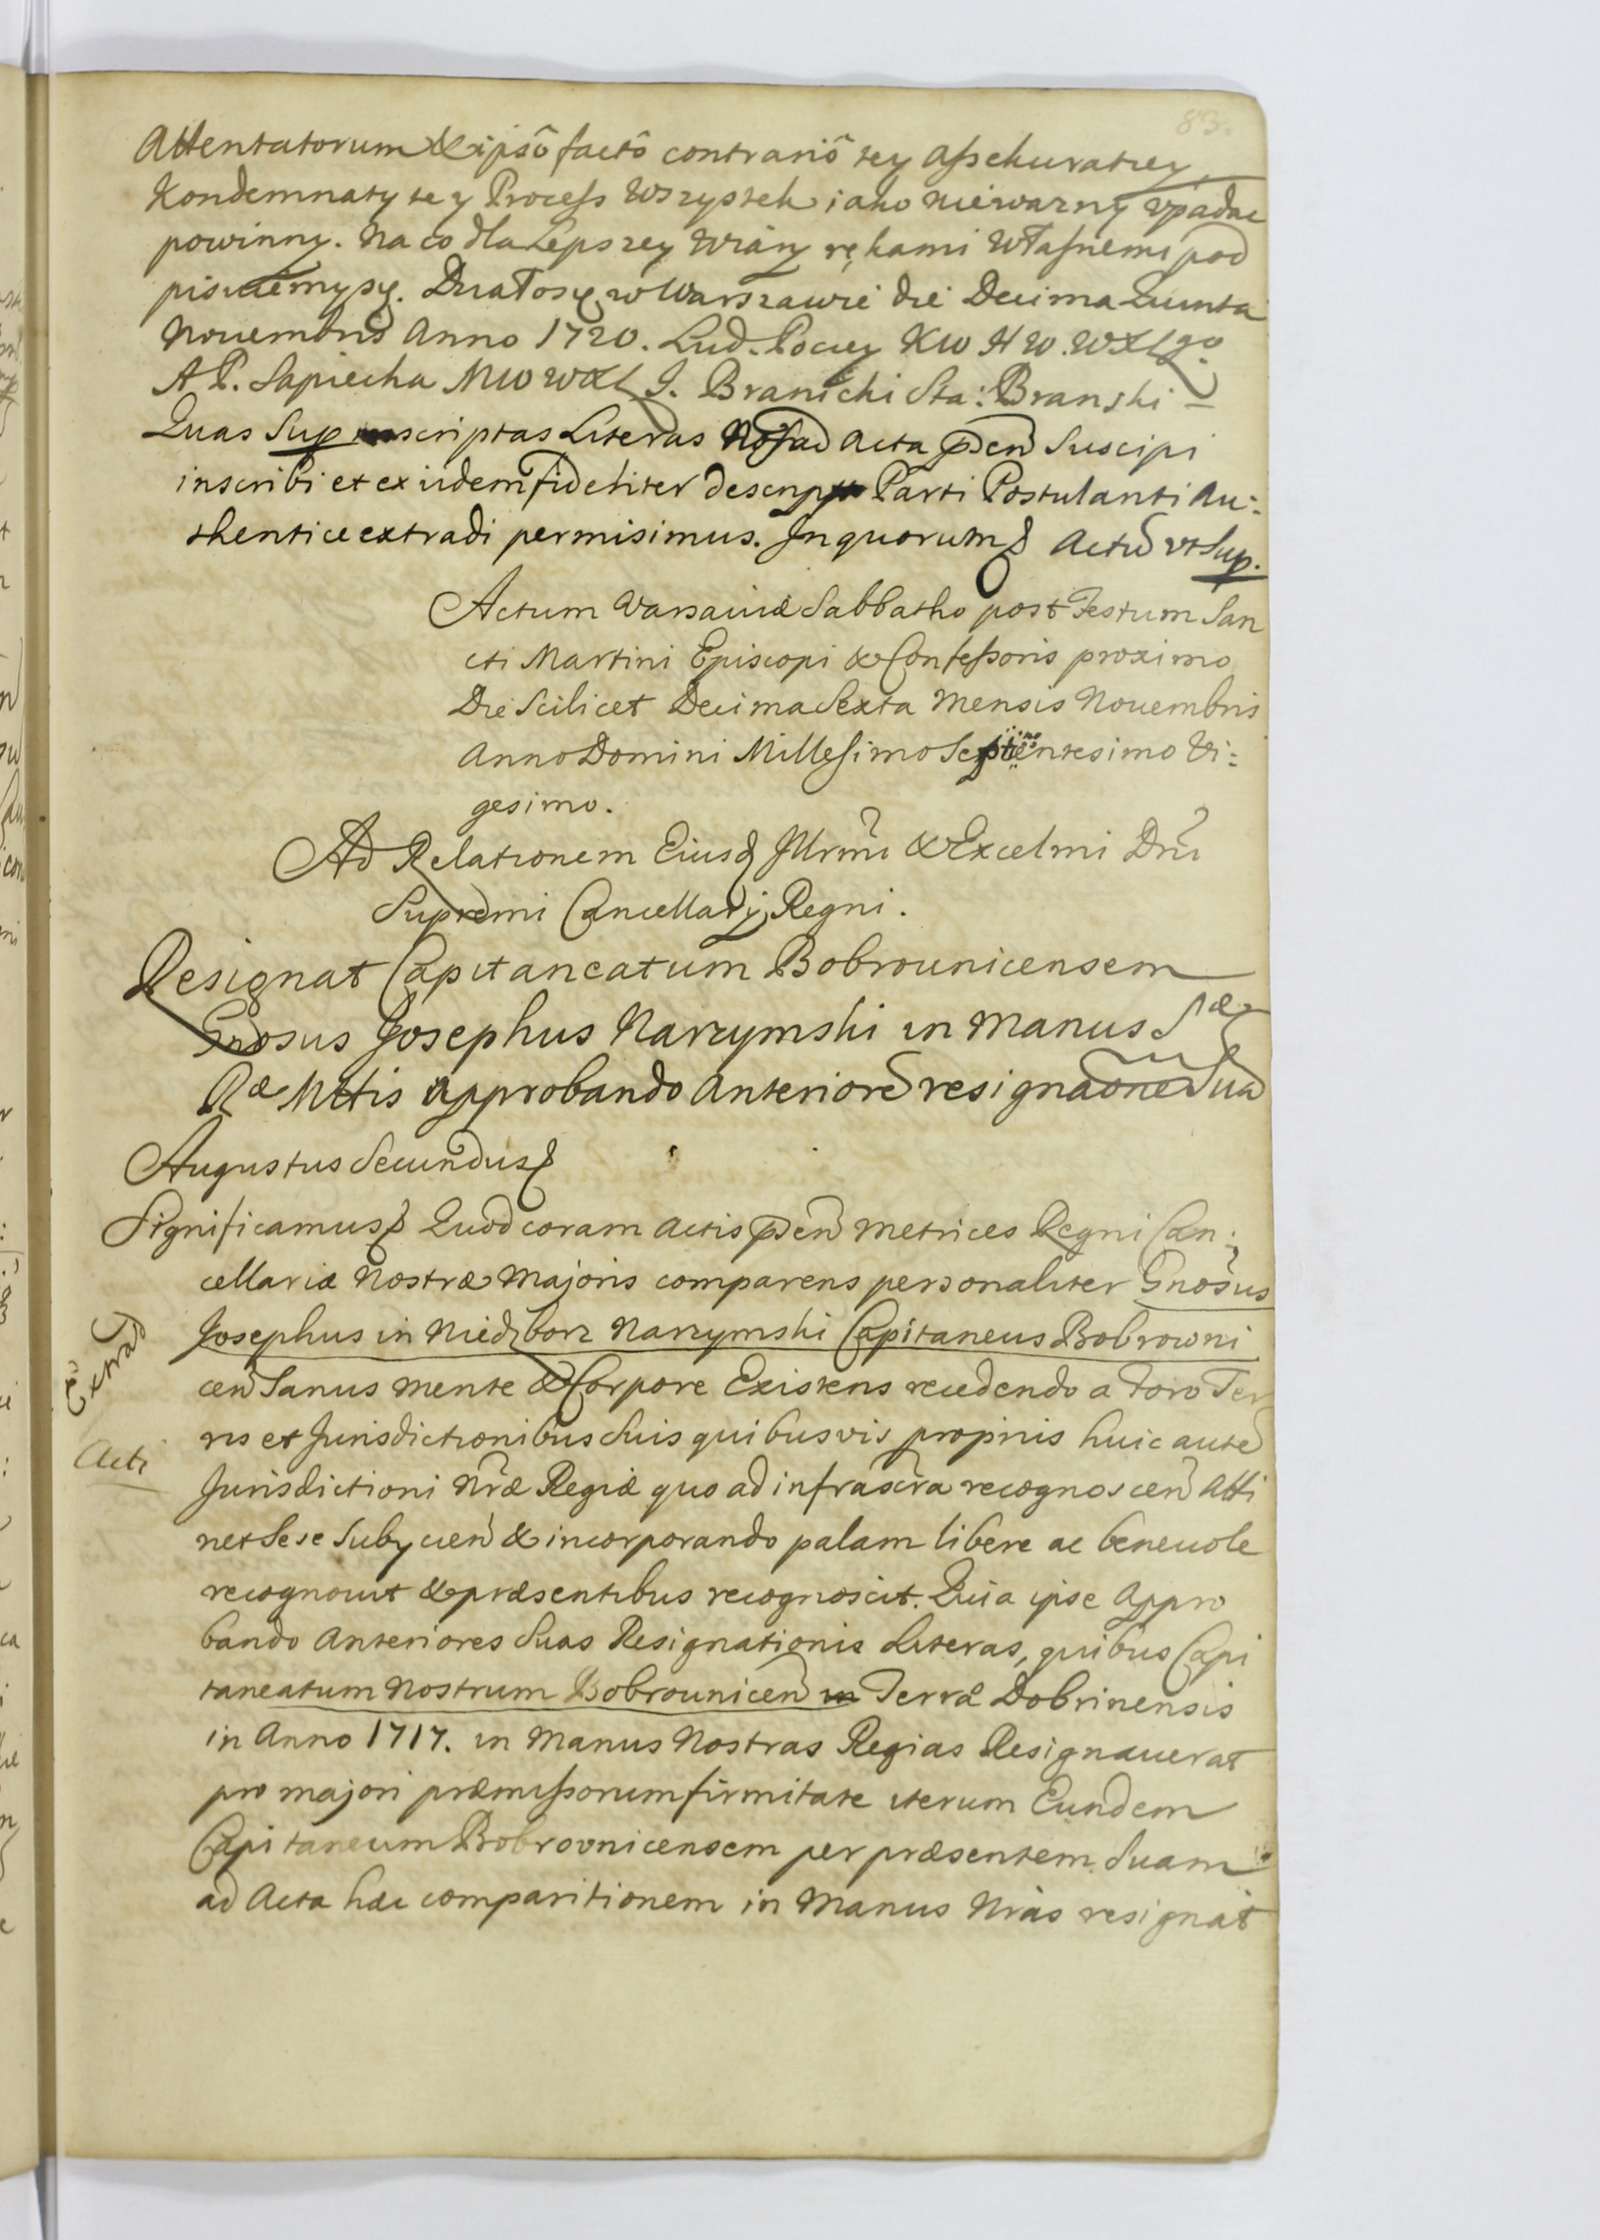 83.
Attentatorum & ipsô factô contrariô tey Assekuratiey,
Kondemnaty te y Process Wszystek iako nieważny vpadać
powinny. Na co dla Lepszey Wiáry rękami Własnemi pod
pisuiemy się. Działo się w Warszawie die Decima Quinta
Novembris Anno 1720. Lud. Pociey KW HW. WXLgo
A P. Sapiecha MWWXL J. Branicki Sta: Branski —
Quas Suprascriptas Literas Nos ad Acta pñcñ Suscipi
inscribi et ex iidem fideliter descriptas Parti Postulanti Au:
thentice extradi permisimus. In quorum Actũ vt Sup.
Actum Varsaviæ Sabbatho post Festum San
cti Martini Episcopi & Confessoris proximo
Die Scilicet Decima Sexta Mensis Novembris
Anno Domini Millesimo Septingentesimo Vi:
gesimo.
Ad Relationem Eiusd Illrmi & Excelmi Dni
Supremi Cancellarij Regni.
Resignat Capitaneatum Bobrounicensem
Gnosus Josephus Narzymski in Manus Sæ
Ræ Mttis approbando Anteriorẽ resignaonẽ Suã
Augustus Secundus
Significamus Quod coram Actis pñcñ Metrices Regni Can:
cellariæ Nostræ Majoris comparens personaliter Gnosus
Josephus in Niedzborz Narzymski Capitaneus Bobrowni
cen̄ Sanus mente & Corpore Existens recedendo a Foro Ter
ris et Jurisdictionibus Suis quibusvis proprijs huic autẽ
Extrad
Acti
Jurisdictioni Nræ Regiæ quo ad infrascra recognoscen̄ Atti
net Sese Subijcien̄ & incorporando palam libere ac benevole
recognovit & præsentibus recognoscit. Quia ipse Appro
bando Anteriores Suas Resignationis Literas, quibus Capi
taneatum Nostrum Bobrounicen̄ in Terra Dobrinensis
in Anno 1717. in Manus Nostras Regias Resignaverat
pro majori præmissorum firmitate iterum Eundem
Capitaneum Bobrovnicensem per præsentem Suam
ad Acta hæc comparitionem in Manus Nras resignat